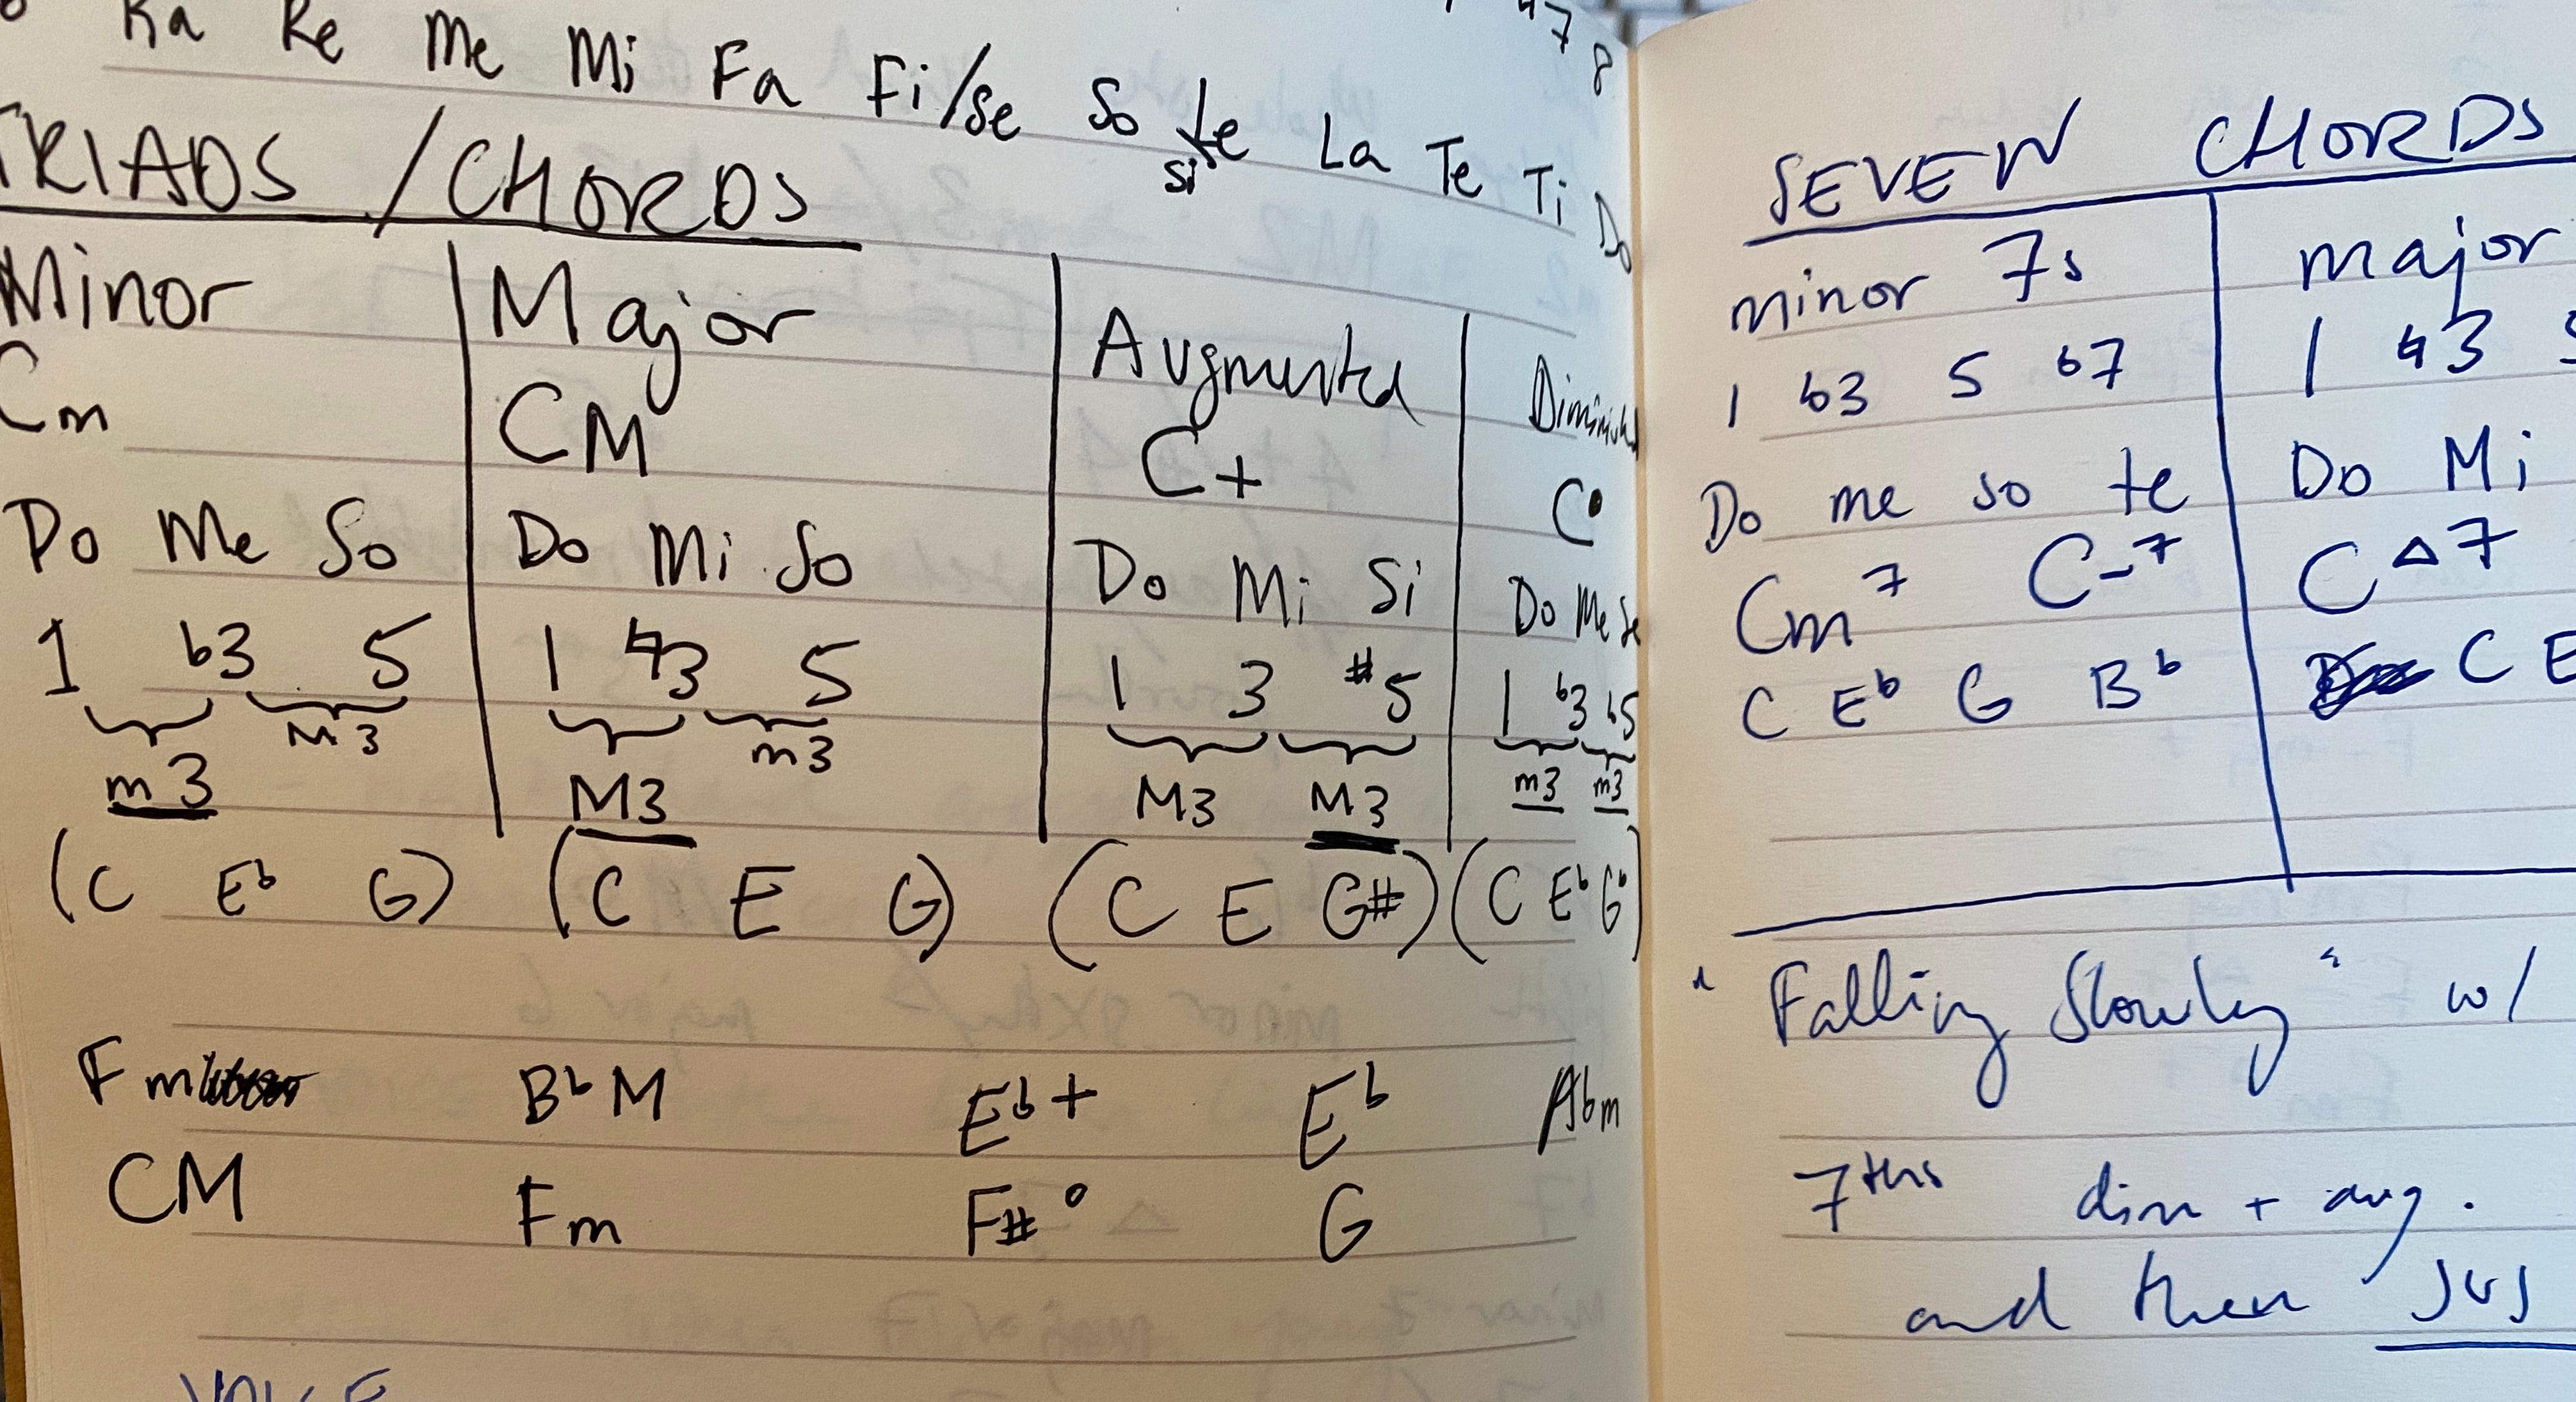 Ra Re Me Mi Fa Fi/Se So Le La Te Ti Do
si
7 8
TRIADS / CHORDS
Minor Major Augmented Diminished
Cm CM C+ C°
Do Me So Do Mi So Do Mi Si Do Me Se
1 b3 5 1 ♮3 5 1 3 #5 1 b3 b5
m3 M3 M3 m3 M3 M3 m3 m3
(C Eb G) (C E G) (C E G#) (C Eb Gb)
Fm BbM Eb+ Eb Abm
CM Fm F#° G
VOICE
SEVEN CHORDS
minor 7s major
1 b3 5 b7 1 ♮3 5
Do me so te Do Mi
Cm7 C-7 C△7
C Eb G Bb C E
"Falling Slowly" w/
7ths dim + aug.
and then sus